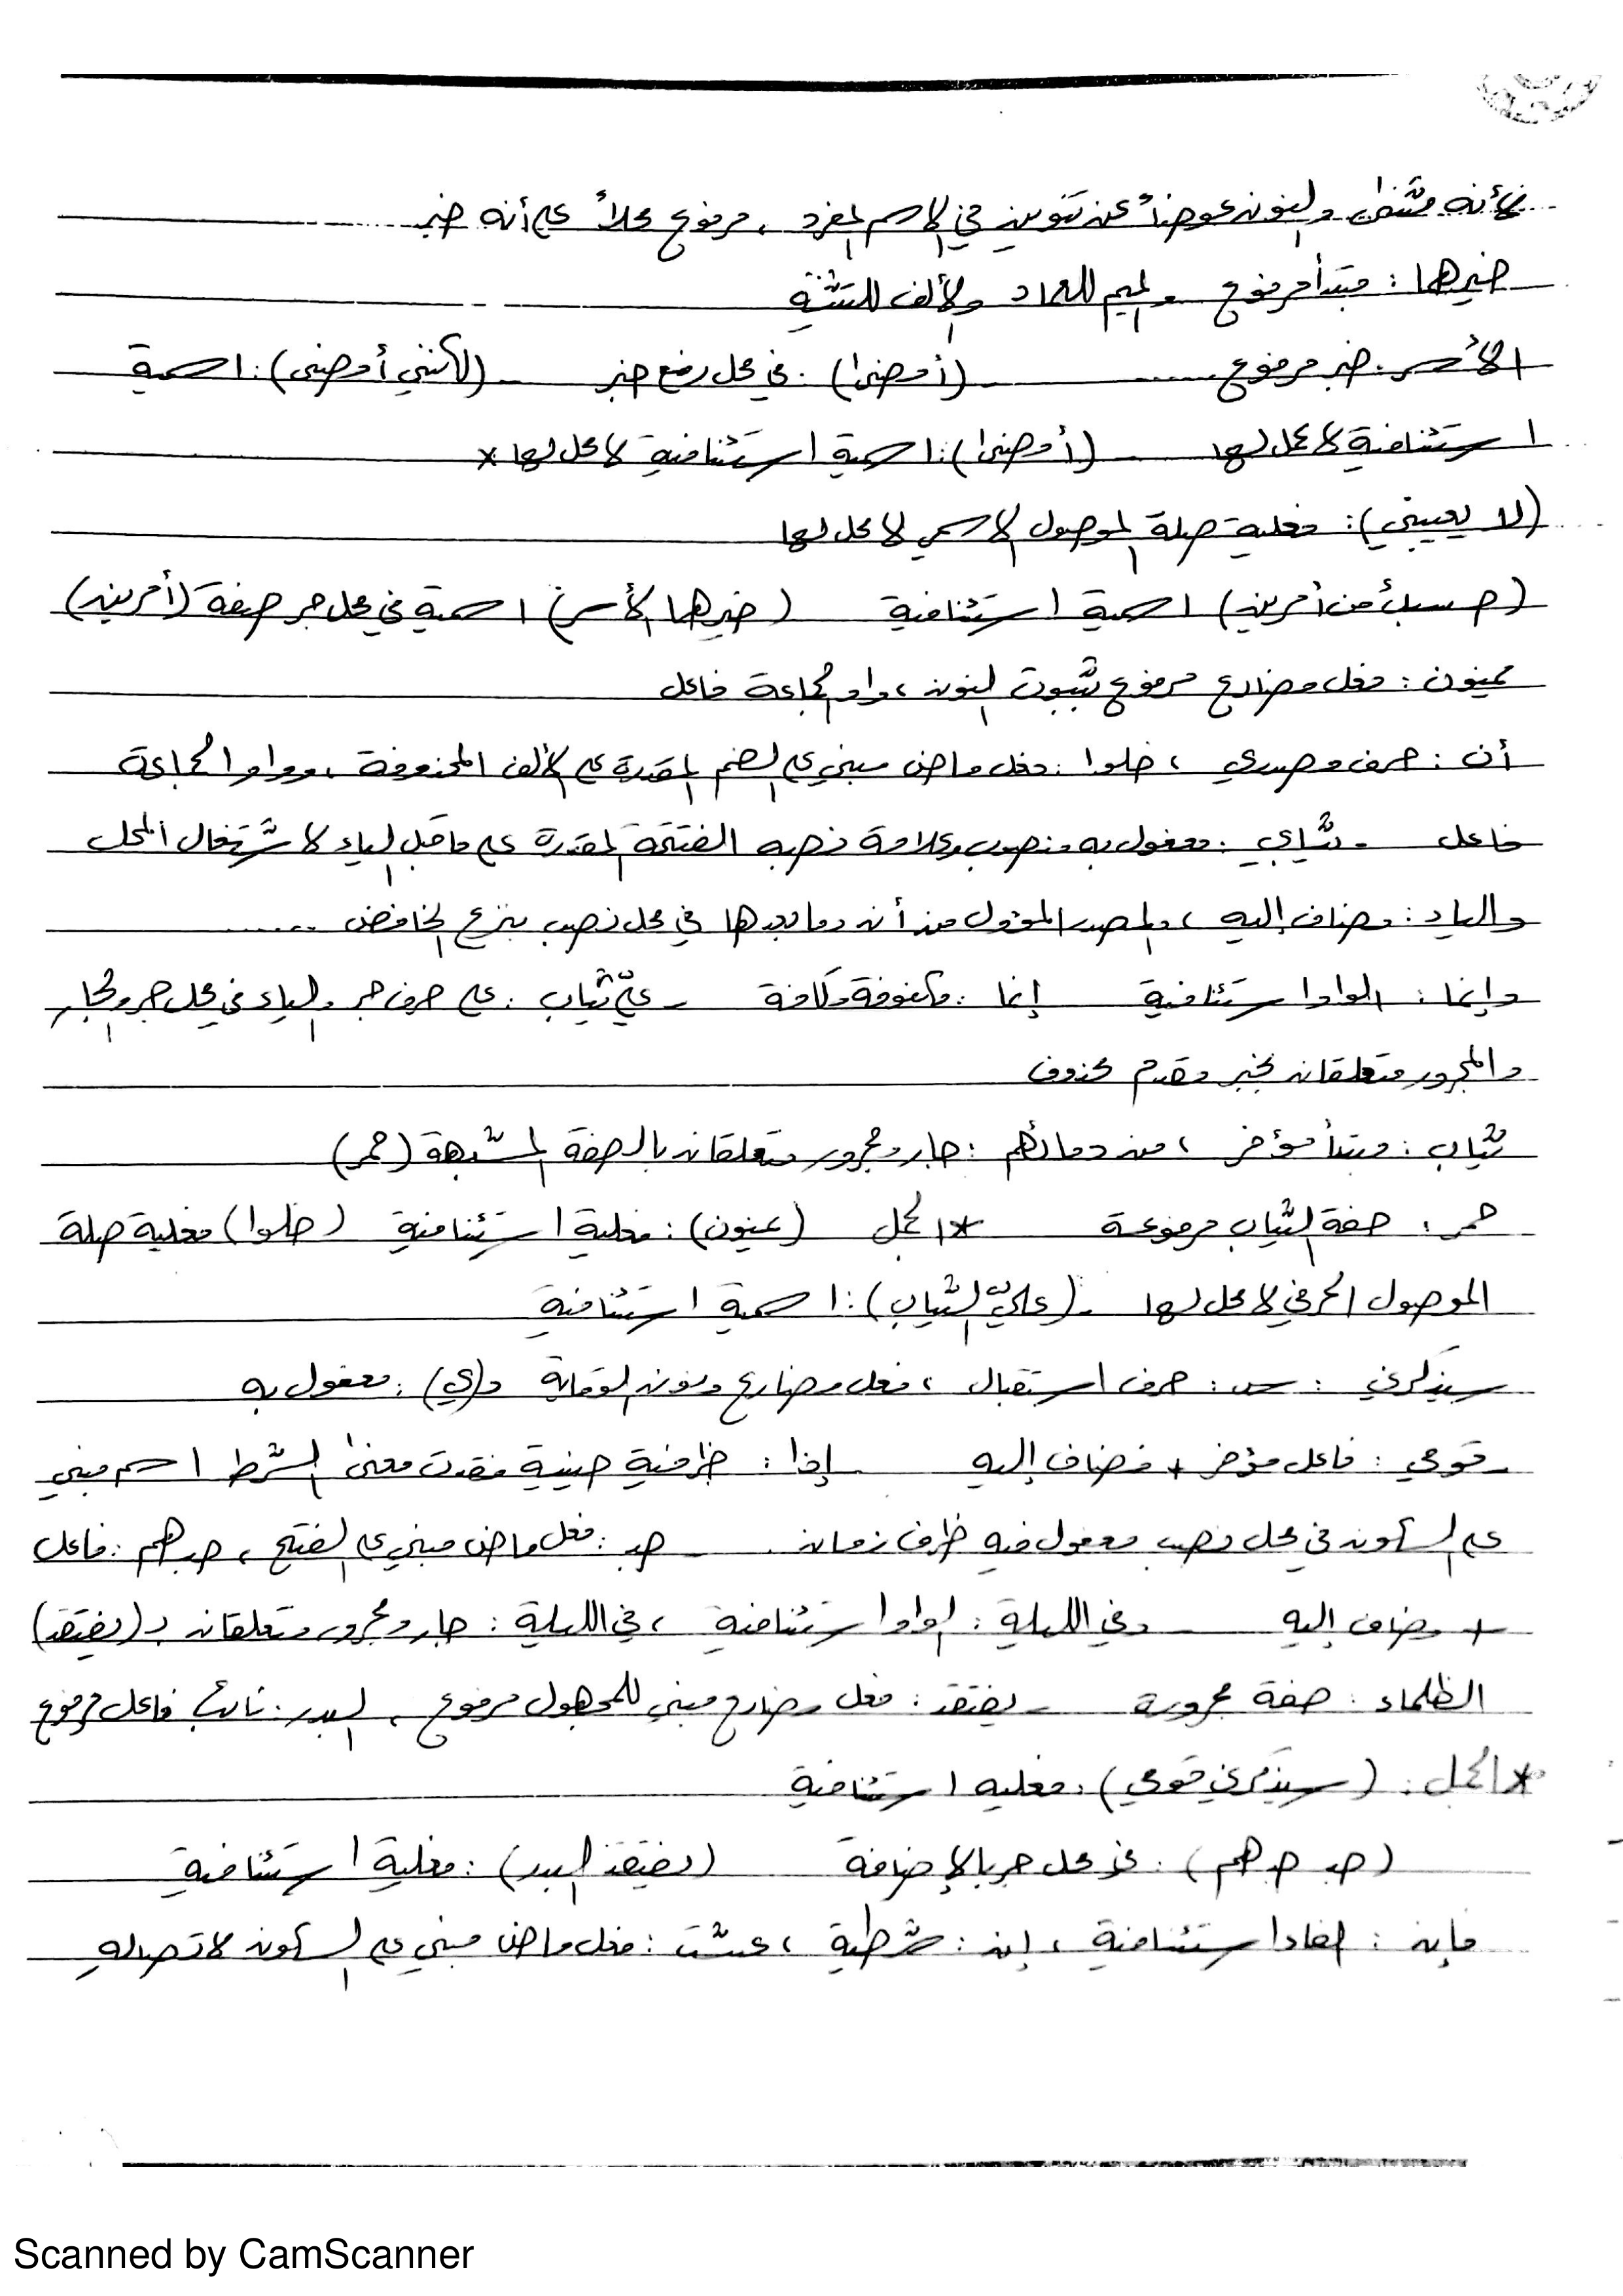 كأنه مثنى والنون عوضاً عن تنوين في الاسم المفرد ، مرفوع محلاً على أنه خبر
خيرهما : مبتدأ مرفوع والميم للعماد والألف للتثنية
الأسر . خبر مرفوع (أمضي) . في محل رفع خبر (لكنني أمضي) : اسمية
استئنافية لا محل لها (أمضي) : اسمية استئنافية لا محل لها *
(لا يعيبني) : فعلية صلة الموصول الاسمي لا محل لها
(حسبك من أمرين) اسمية استئنافية (خيرهما الأسر) اسمية في محل جر صفة (أمرين)
يمنون : فعل مضارع مرفوع بثبوت النون ، واو الجماعة فاعل
أن : حرف مصدري ، خلوا : فعل ماض مبني على الضم المقدرة على الألف المحذوفة ، وواو الجماعة
فاعل ـ ثيابي : مفعول به منصوب وعلامة نصبه الفتحة المقدرة على ما قبل الياء لاشتغال المحل
والياء : مضاف إليه ، والمصدر المؤول من أن وما بعدها في محل نصب بنزع الخافض .....
وإنما : الواو استئنافية إنما : مكفوفة وكافة ـ عليّ ثياب : على حرف جر والياء في محل جر والجار
والمجرور متعلقان بخبر مقدم محذوف
ثياب : مبتدأ مؤخر ، من دمائهم : جار ومجرور متعلقان بالصفة المشبهة (حمر)
حمر : صفة لثياب مرفوعة * الجمل (يمنون) : فعلية استئنافية (خلوا) فعلية صلة
الموصول الحرفي لا محل لها ـ (عليّ الثياب) : اسمية استئنافية
سيذكرني : س : حرف استقبال ، فعل مضارع ونون الوقاية و(ي) : مفعول به
ـ قومي : فاعل مؤخر + مضاف إليه إذا : ظرفية حينية فقدت معنى الشرط اسم مبني
على السكون في محل نصب مفعول فيه ظرف زمان . ـ جد : فعل ماض مبني على الفتح ، جدهم : فاعل
+ مضاف إليه وفي الليلة : الواو استئنافية ، في الليلة : جار ومجرور متعلقان بـ (يفتقد)
الظلماء : صفة مجرورة ـ يفتقد : فعل مضارع مبني للمجهول مرفوع ، البدر : نائب فاعل مرفوع
* الجمل : (سيذكرني قومي) : فعلية استئنافية
(جد جدهم) : في محل جر بالإضافة (يفتقد البدر) : فعلية استئنافية
فإن : الفاء استئنافية ، إن : شرطية ، عشت : فعل ماض مبني على السكون لاتصاله
Scanned by CamScanner